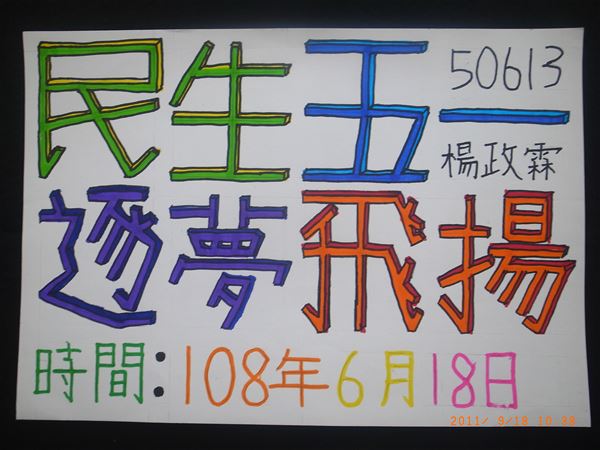 民生五一
50613
楊政霖
逐夢飛揚
時間:108年6月18日
2011/ 9/18 10:38